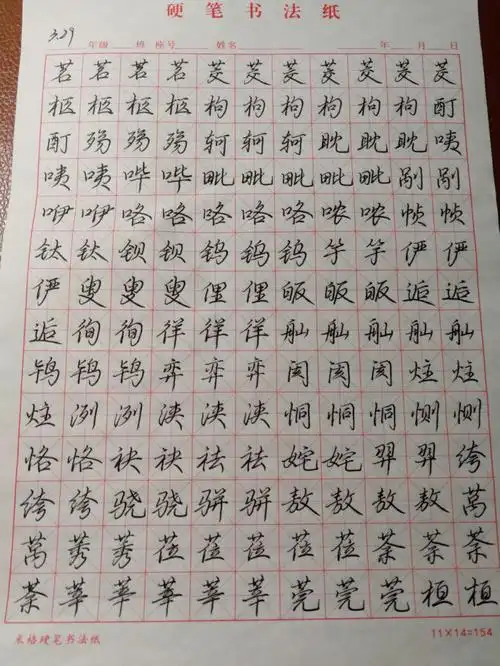 硬笔书法纸
3.29 年级 班 座号 姓名 年 月 日
茗茗茗茗茭茭茭茭茭茭茭
柩柩柩柩枸枸枸枸枸枸酊
酊殇殇殇轲轲轲眈眈眈咦
咦咦哔哔毗毗毗毗毗剐剐
咿咿咯咯咯咯咯哝哝帧帧
钛钛钡钡钨钨钨竽竽俨俨
俨叟叟叟俚俚皈皈皈逅逅
逅徇徇徉徉徉舢舢舢舢舢
鸨鸨鸨弈弈弈阂阂阂炷炷
炷洌洌浃浃浃恫恫恫恻恻
恪恪袂袂祛祛姹姹羿羿绔
绔绔骁骁骈骈敖敖敖敖莴
莴莠莠莅莅莅莅莅荼荼荼
荼莘莘莘莘莘莞莞莞桓桓
米格硬笔书法纸 11×14=154